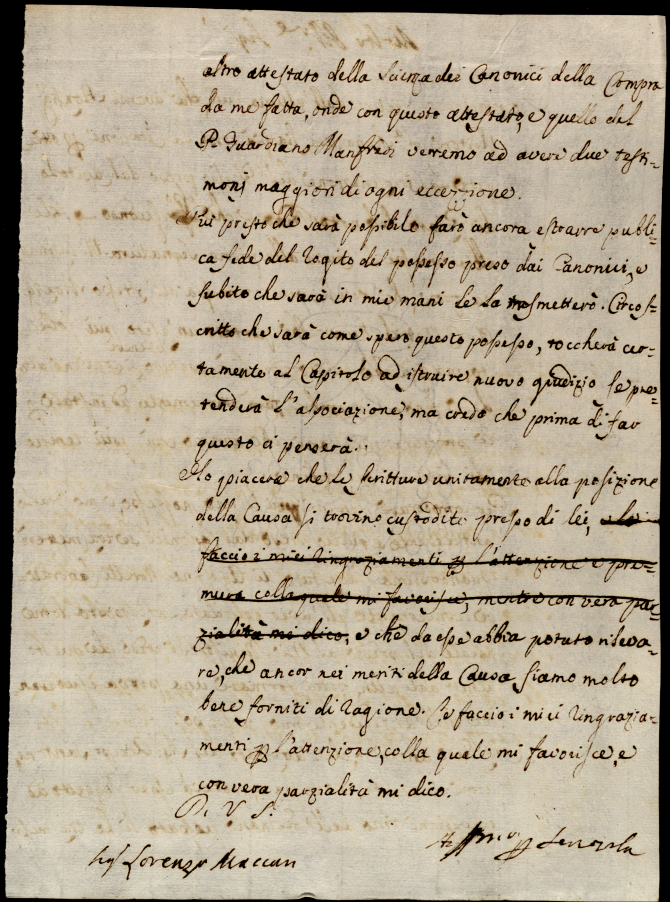 altro attestato della scienza dei Canonici della Compra
da me fatta, onde con questo attestato, e quello del
P. Guardiano Manfredi verremo ad avere due testi-
monj maggiori di ogni eccezzione.
Più presto che sarà possibile farò ancora estrarre publi-
ca fede del Rogito del possesso preso dai Canonici, e
subito che sarà in mie mani le la trasmetterò. Circos-
critto che sarà come spero questo possesso, toccherà cer-
tamente al Capitolo ad istruire nuovo giudizio se pre-
tenderà l'associazione, ma credo che prima di far
questo ci penserà.
Ho piacere che le scritture unitamente alla posizione
della Causa si trovino custodite presso di lei, e le
faccio i miei ringraziamenti p l'attenzione e pre-
mura colla quale mi favorisce, mentre con vera par-
zialità mi dico, e che da esse abbia potuto rileva-
re, che ancor nei meriti della Causa siamo molto
bene forniti di ragione. Le faccio i miei ringrazia-
menti p l'attenzione, colla quale mi favorisce, e
con vera parzialità mi dico.
Di V. S.
Sig Lorenzo Maccari